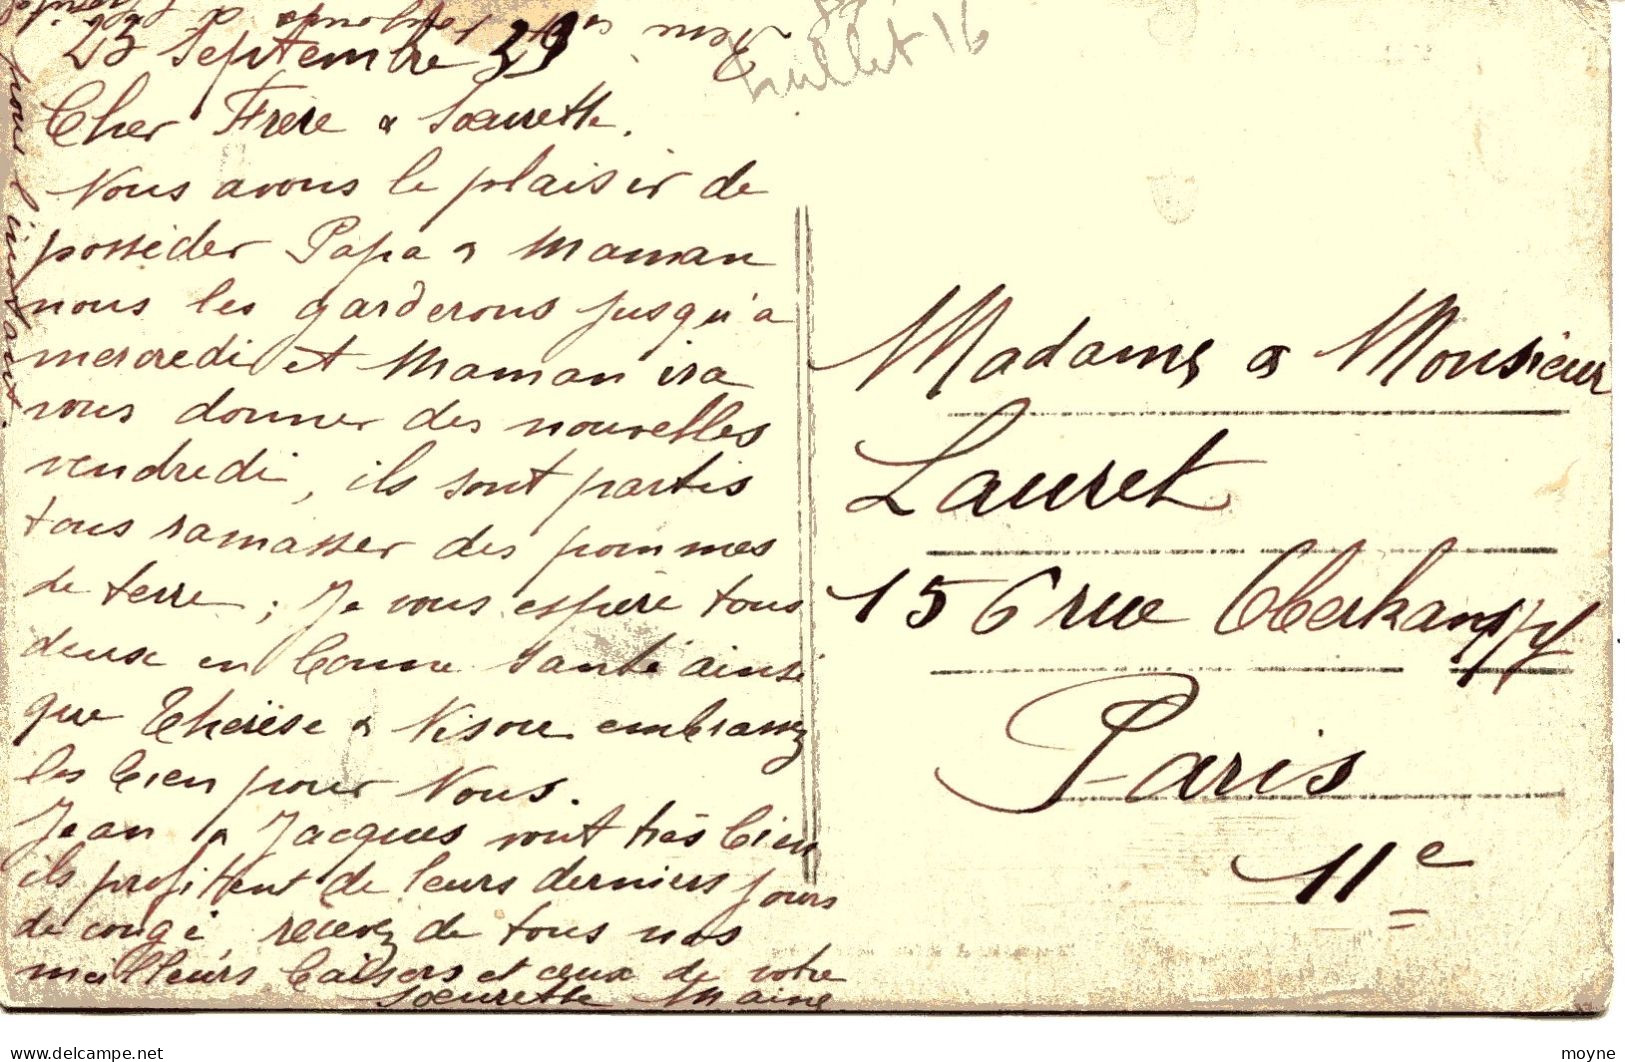 23 Septembre 29
Cher Frère & Soeurette.
Nous avons le plaisir de
posséder Papa & Maman
nous les garderons jusqu'a
mercredi et Maman ira
vous donner des nouvelles
vendredi, ils sont partis
tous ramasser des pommes
de terre ; Je vous espère tous
deux en bonne santé ainsi
que Thérèse & embrassez
les bien pour Nous.
Jean & Jacques vont très bien
ils profitent de leurs derniers jours
de congé, recevez de tous nos
meilleurs baisers et ceux de votre
soeurette
pour l'instant.
Rien
Juillet 16
Madame & Monsieur
Lauret
156 rue Oberkampf
Paris
11e
delcampe.net
moyne